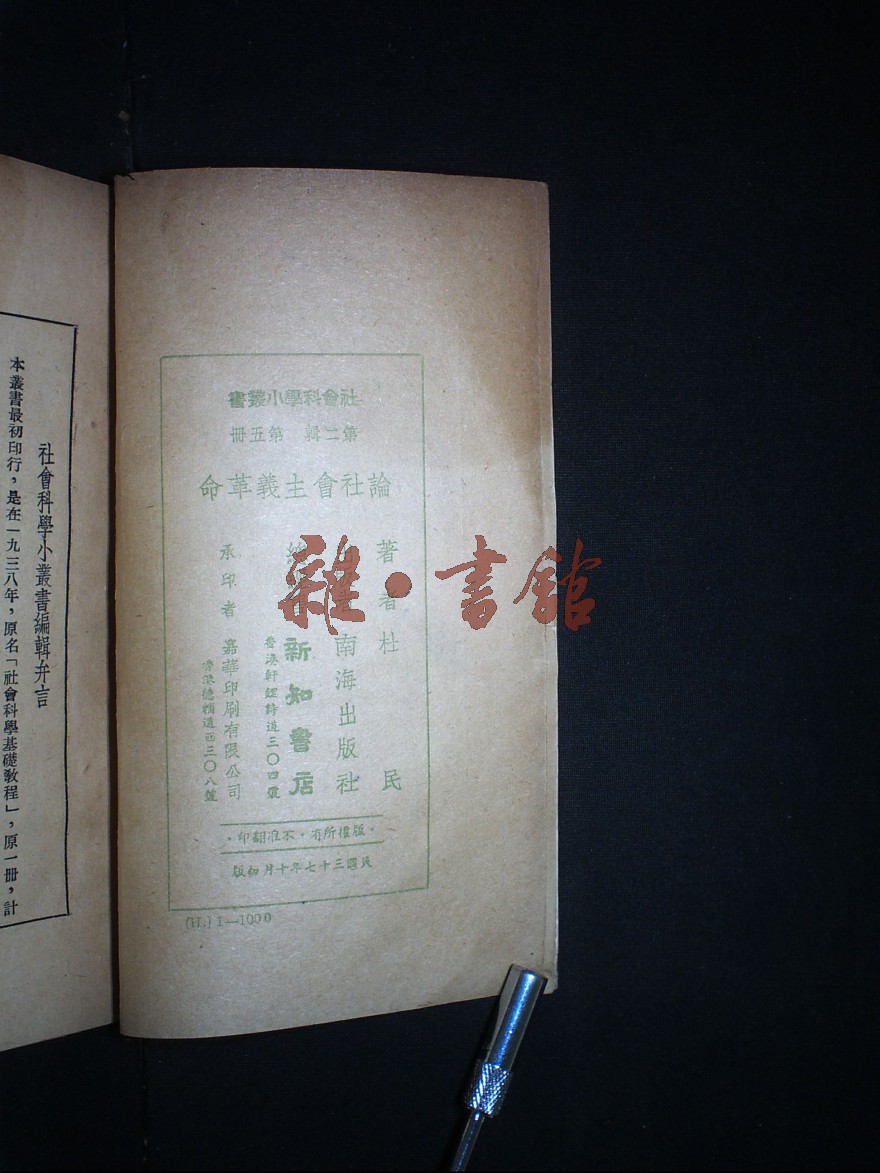 社會科學小叢書
第二輯 第五冊
論社會主義革命
著者 杜民
南海出版社
新知書店
香港軒鯉詩道三〇四號
承印者 嘉華印刷有限公司
香港德輔道西三〇八號
·版權所有·不准翻印·
民國三十七年十月初版
(H.) 1—1000
社會科學小叢書編輯弁言
本叢書最初印行，是在一九三八年，原名「社會科學基礎教程」，原一冊，計
雜·書館